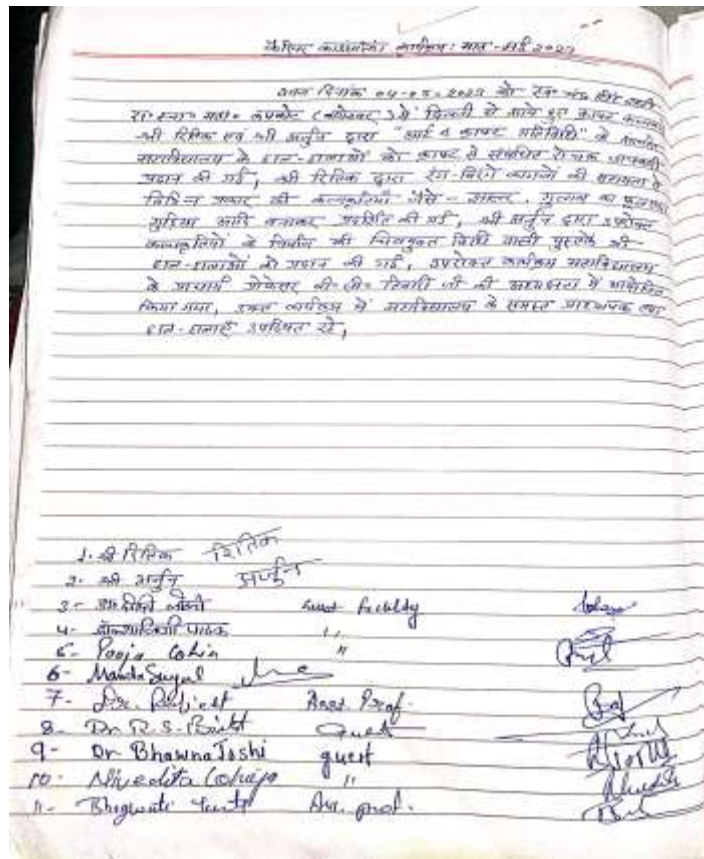 कैरियर काउंसलिंग कार्यक्रम: माह - मई 2023
आज दिनांक 04-05-2023 को स्व०
रा० स्ना० महा० कपकोट (बागेश्वर) में दिल्ली से आये हुए क्राफ्ट कलाकार
श्री रितिक एवं श्री अर्जुन द्वारा "आर्ट & क्राफ्ट गतिविधि" के अन्तर्गत
महाविद्यालय के छात्र-छात्राओं को क्राफ्ट से संबंधित रोचक जानकारी
प्रदान की गई, श्री रितिक द्वारा रंग-बिरंगे कागजों की सहायता से
विभिन्न प्रकार की कलाकृतियाँ जैसे - गुलाब का फूल
गुड़िया आदि बनाकर प्रदर्शित की गई, श्री अर्जुन द्वारा उपरोक्त
कलाकृतियों के निर्माण की वाली पुस्तकें भी
छात्र-छात्राओं को प्रदान की गई, उपरोक्त कार्यक्रम महाविद्यालय
के प्राचार्य प्रोफेसर बी० सी० तिवारी जी की अध्यक्षता में आयोजित
किया गया, उक्त कार्यक्रम में महाविद्यालय के समस्त प्राध्यापक एवं
छात्र-छात्राएँ उपस्थित रहे,
1. श्री रितिक रितिक
2. श्री अर्जुन अर्जुन
3- जोशी Guest faculty
4- पाठक ,,
5- Pooja "
6-
7- Dr. Asst. Prof.
8- Dr. R. S. Bisht Guest
9- Dr Bhawna Joshi guest
10- Nivedita "
11- Bhagwati Ass. prof.